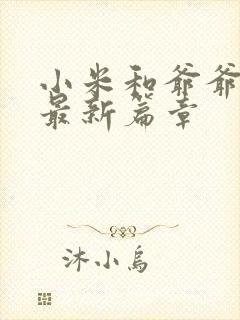 小米和爷爷
最新篇章
沐小乌